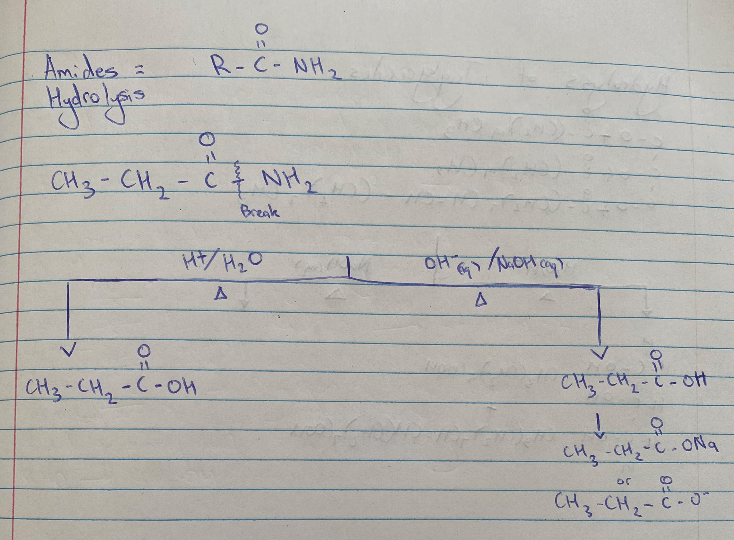 O
Amides = R - C - NH₂
Hydrolysis
O
CH₃ - CH₂ - C NH₂
Break
H+/H₂O OH⁻(aq) /NaOH(aq)
Δ Δ
O O
CH₃-CH₂-C-OH CH₃-CH₂-C-OH
O
CH₃-CH₂-C-ONa
or O
CH₃-CH₂-C-O⁻